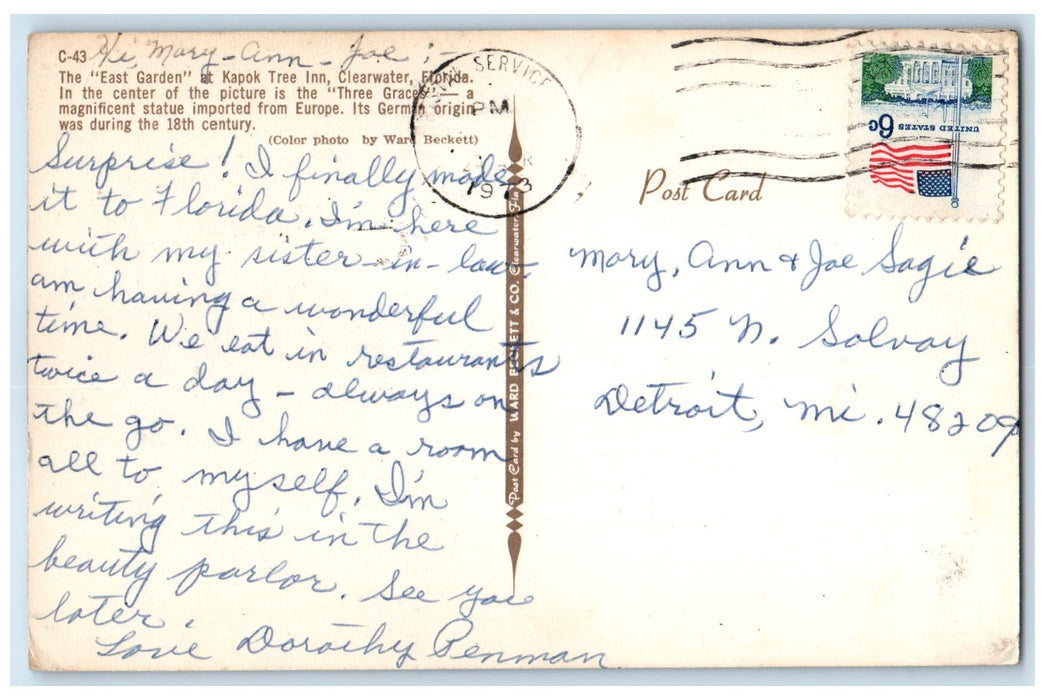 Hi, Mary-Ann-Joe ; -
C-43
The "East Garden" at Kapok Tree Inn, Clearwater, Florida.
In the center of the picture is the "Three Graces" — a
magnificent statue imported from Europe. Its German origin
was during the 18th century.
(Color photo by Ward Beckett)
Surprise! I finally made
it to Florida. I'm here
with my sister-in-law-
am having a wonderful
time. We eat in restaurants
twice a day - always on
the go. I have a room
all to myself. I'm
writing this in the
beauty parlor. See you
later.
Love Dorothy Penman
Post Card by WARD BECKETT & CO. Clearwater, Fla.
SERVICE
PM
1973
Post Card
6c
UNITED STATES
Mary, Ann & Joe Sagie
1145 N. Solvay
Detroit, Mi. 48209